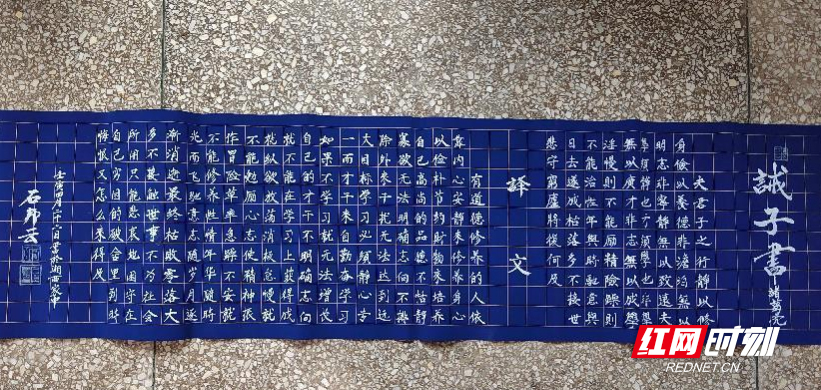 誡子書
諸葛亮
夫君子之行靜以修
身儉以養德非澹泊無以
明志非寧靜無以致遠夫
學須靜也才須學也非學
無以廣才非志無以成學
淫慢則不能勵精險躁則
不能治性年與時馳意與
日去遂成枯落多不接世
悲守窮廬將復何及
譯文
有道德修养的人依
靠内心安静来修养身心
以俭朴节约财物来培养
自己高尚的品德不恬静
寡欲无法明确志向不排
除外来干扰无法达到远
大目标学习就须静心专一
而才干来自勤奋学习
如果不学习就无法增长
自己的才干不明确志向
就不能在学习上获得成
就纵欲放荡消极怠慢就
不能勉励心志使精神振
作冒险草率急躁不安就
不能修养性情年华随时
光而飞驰意志随岁月逐
渐消逝最终枯败零落大
多不接触世事不为社会
所用只能悲哀地困守在
自己穷困的破舍里到时
悔恨又怎么来得及
石邦云
红网时刻
REDNET.CN